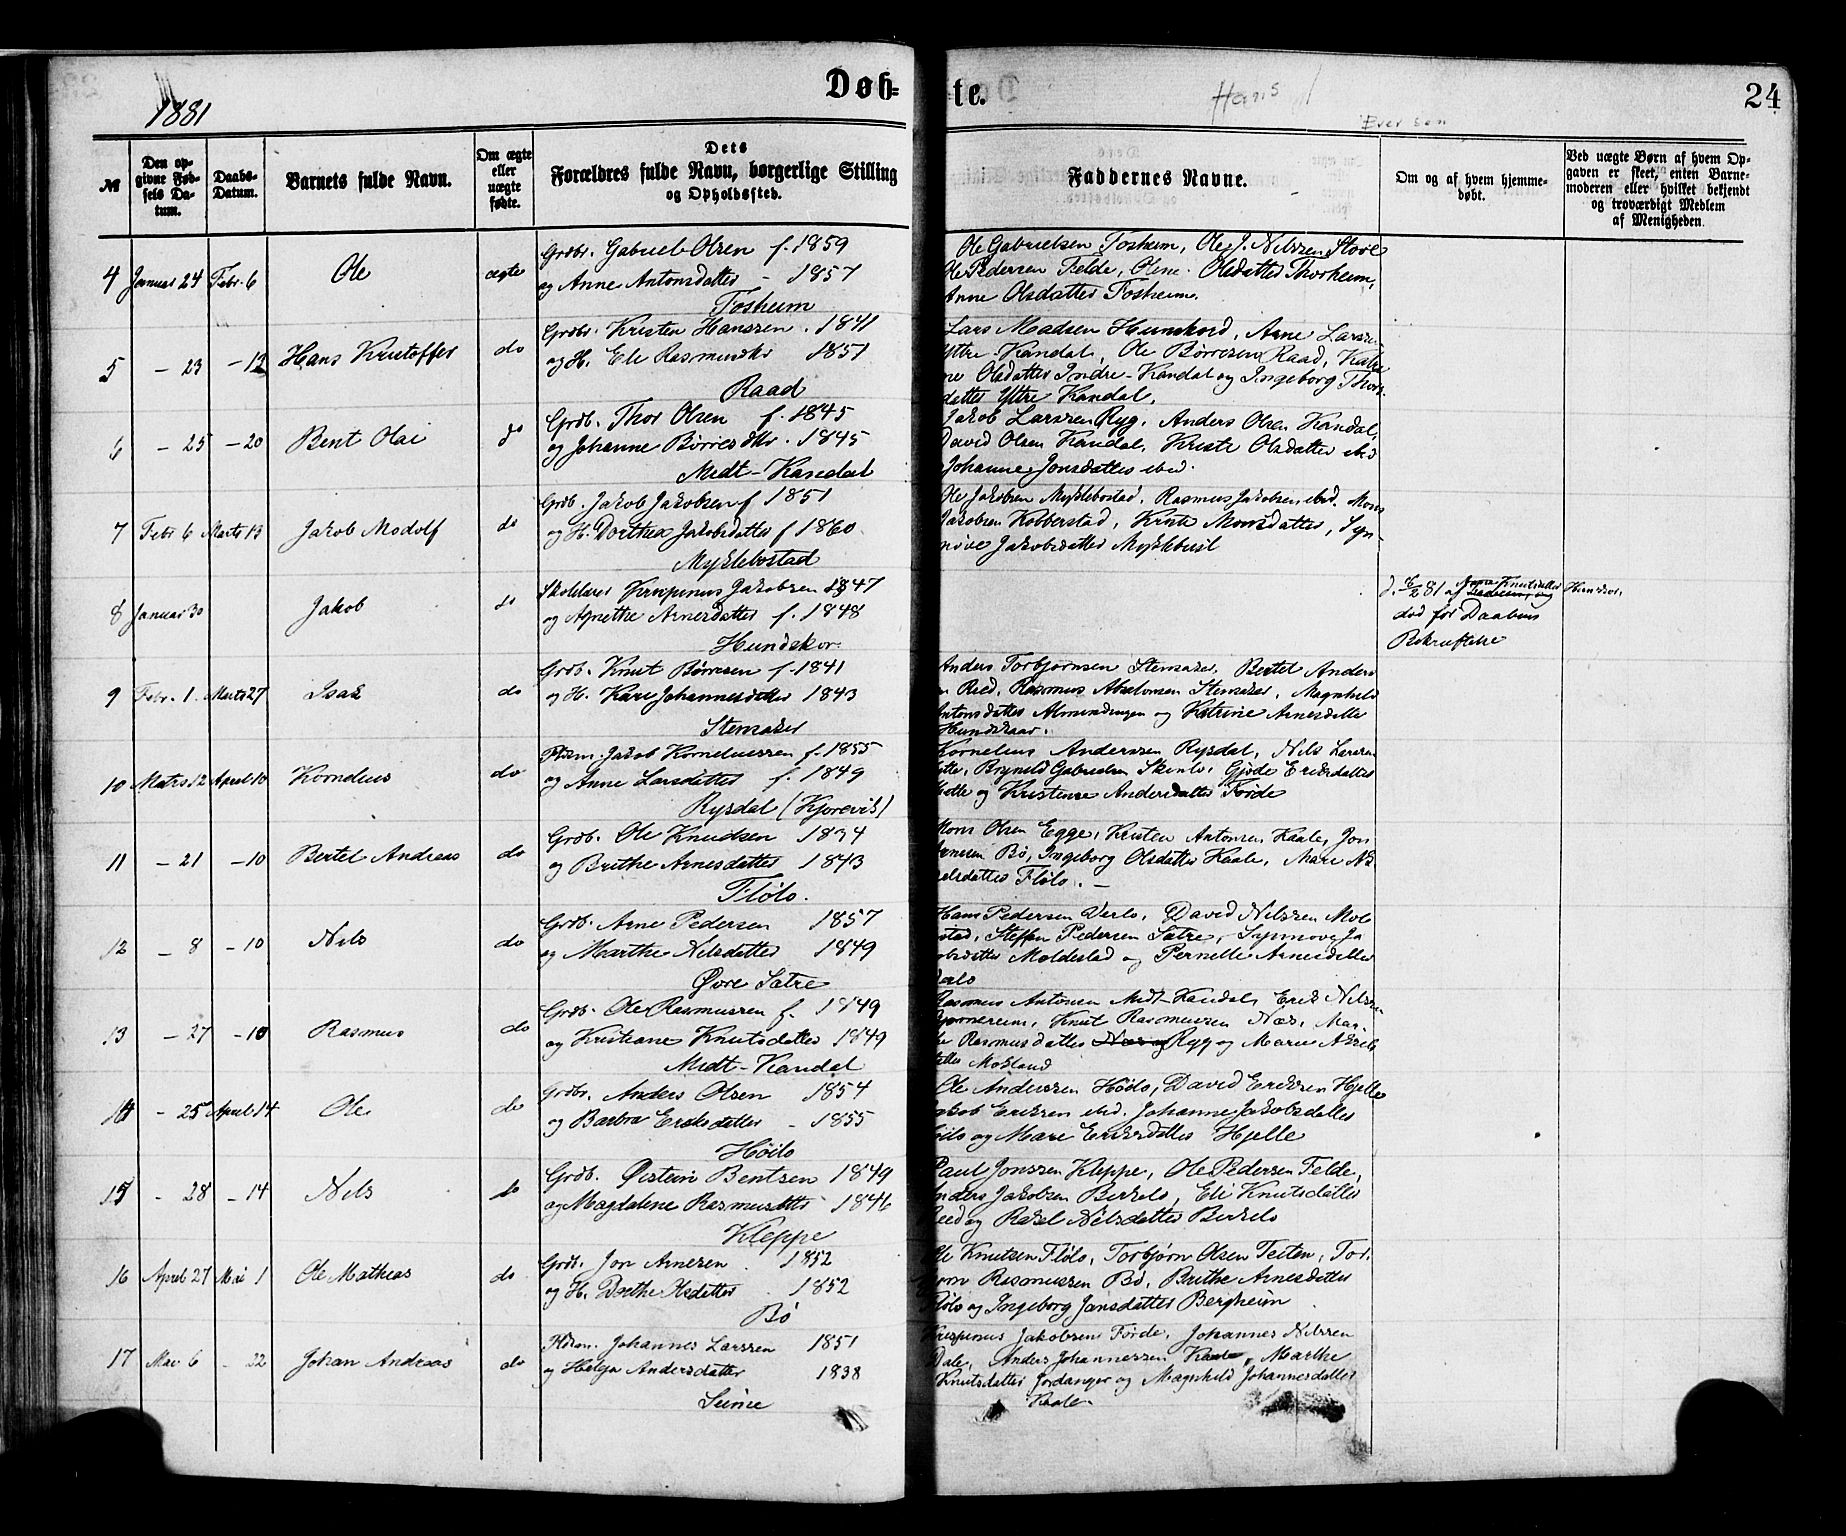 1881
Døb=
te.
Hans
24
№
Den op-
givne Fød-
sels Da-
tum.
Daabs-
Datum.
Barnets fulde Navn.
Om ægte
eller
uægte
fødte.
Dets
Forældres fulde Navn, borgerlige Stilling
og Opholdssted.
Faddernes Navne.
Om og af hvem hjemme-
døbt.
Ved uægte Børn af hvem Op-
gaven er skeet, enten Barne-
moderen eller hvilket bekjendt
og troværdigt Medlem
af Menigheden.
4 Januar 24 Febr. 6 Ole ægte
Grdbr. Gabriel Olsen f. 1859
og Anne Antonsdatter - 1857
Fosheim
Ole Gabrielsen Fosheim, Ole J. Nilssen Støve
Ole Pedersen Felde, Oline Olsdatter Thorheim,
Anne Olsdatter Fosheim.
5 - 23 - 13 Hans Kristoffer do
Grdbr. Kristen Hanssen. 1841
og H. Eli Rasmusdtr 1851
Raad
Lars Madsen Hunskord, Arne Larsen
Yttre-Kandal, Ole Børresen Raad, Katri
ne Olsdatter Indre-Kandal og Ingeborg Thors
datter Yttre Kandal.
6 - 25 - 20 Bent Olai do
Grdb. Thor Olsen f. 1845
og Johanne Børresdtr. 1845
Midt-Kandal
Jakob Larssen Ryg, Anders Olsen Kandal,
David Olsen Kandal, Kristi Olsdatter ibid
Johanne Jonsdatter ibid.
7 Febr 6 Marts 13 Jakob Modolf do
Grdb. Jakob Jakobsen f 1851
og H. Dorthea Jakobsdatter f 1860
Myklebostad
Ole Jakobsen Myklebostad, Rasmus Jakobsen ibid. Mons
Jakobsen Kobberstad, Kristi Monsdatter, Syn-
nøve Jakobsdatter Myklebust
8 Januar 30 Jakob do
Skolelærer Krispinus Jakobsen 1847
og Agnethe Arnesdatter f. 1848
Hundskor
d. 6/2 81 af Anne Knutsdatter
død før Daabens
Bekræftelse
9 Febr. 1. Marts 27 Isak do
Grdb. Knut Børresen f. 1841
og H. Kari Johannesdatter 1843
Stensaker
Anders Torbjørnsen Stensaker, Bertel Anders
en Reed, Rasmus Absalonsen Stensaker, Magnhild
Antonsdatter Almendingen og Katrine Arnesdatter
Hundskaar.
10 Marts 12 April 10 Kornelius do
Plsm. Jakob Korneliussen f. 1855
og Anne Larsdatter f. 1849
Rysdal (Kjørevik)
Kornelius Anderssen Rysdal, Nils Larssen
Brynild Gabrielsen Skinlo, Gjøde Eriksdatter
og Kristense Andersdatter Førde
11 - 21 - 10 Bertel Andreas do
Grdb. Ole Knudsen 1834
og Brithe Arnesdatter 1843
Flølo.
Mons Olsen Egge, Kristen Antonsen Kaale, Jon
Arnesen Bø, Ingeborg Olsdatter Kaale, Mari Ni
elsdatter Flølo. -
12 - 8 - 10 Nils do
Grdb. Arne Pedersen 1857
og Marthe Nilsdatter 1849
Øvre Sætre
Hans Pedersen Verlo, David Nilssen Mol
stad, Steffen Pedersen Sætre, Synnøve Ja
kobsdatter Moldestad og Pernelle Arnesdatter
Verlo
13 - 27 - 10 Rasmus do
Grdb. Ole Rasmussen f. 1849
og Kristiane Knutsdatter 1849
Midt-Kandal
Rasmus Antonsen Midt-Kandal, Erik Nilsen
Bjørnereim, Knut Rasmussen Næs, Mar-
Rasmusdatter Næs og Ryg og Marie Aksels
datter Mokland
14 - 25 April 14 Ole do
Grdbr. Anders Olsen 1854
og Barbra Eriksdatter - 1855
Høilo
Ole Anderssen Høilo, David Erikssen Hjelle
Jakob Eriksen ibid. Johanne Jakobsdatter
Høilo og Mari Eriksdatter Hjelle
15 - 28 - 14 Nils do
Grdb. Øistein Bentsen 1849
og Magdalene Rasmusdttr 1846
Kleppe
Paul Jonssen Kleppe, Ole Pedersen Felde,
Anders Jakobsen Berkelo, Eli Knutsdatter
Reed og Rakel Nilsdatter Berkelo
16 April 27 Mai 1 Ole Mathias do
Grdb. Jon Arnesen 1852
og H. Dorthe Olsdatter 1852
Bø
Ole Knutsen Flølo, Torbjørn Olsen Teiten, Tor-
bjørn Rasmussen Bø, Brithe Arnesdatter
Flølo og Ingeborg Jansdatter Bergheim
17 Mai 6 - 22 Johan Andreas do
Hdsm. Johannes Larssen 1851
og Helga Andersdatter 1838
Seime
Krispinus Jakobsen Førde, Johannes Nilssen
Dale, Anders Johannessen Kaale, Marthe
Knutsdatter Jordanger og Magnhild Johannesdatter
Kaale